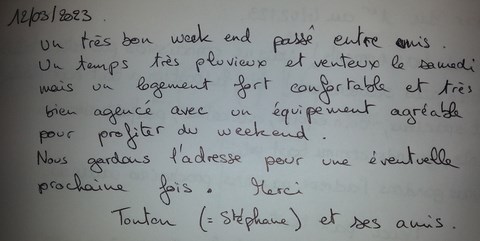 12/03/2023.
Un très bon week end passé entre amis.
Un temps très pluvieux et venteux le samedi
mais un logement fort confortable et très
bien agencé avec un équipement agréable
pour profiter du weekend.
Nous gardons l'adresse pour une éventuelle
prochaine fois. Merci
Tonton (= Stéphane) et ses amis.